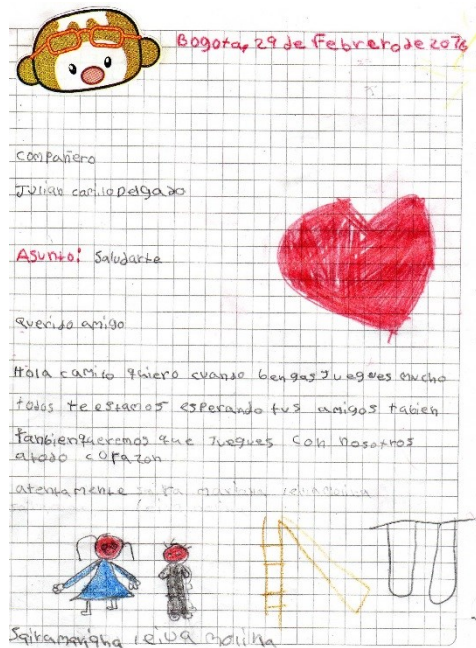 Bogota, 29 de Febrero de 2016
compañero
Julian camilo Delgado
Asunto: Saludarte
querido amigo
Hola camilo quiero cuando bengas Juegues mucho
todos te estamos esperando tus amigos tabien
tanbien queremos que Juegues con nosotros
atodo corazon
atentamente
leiva molina